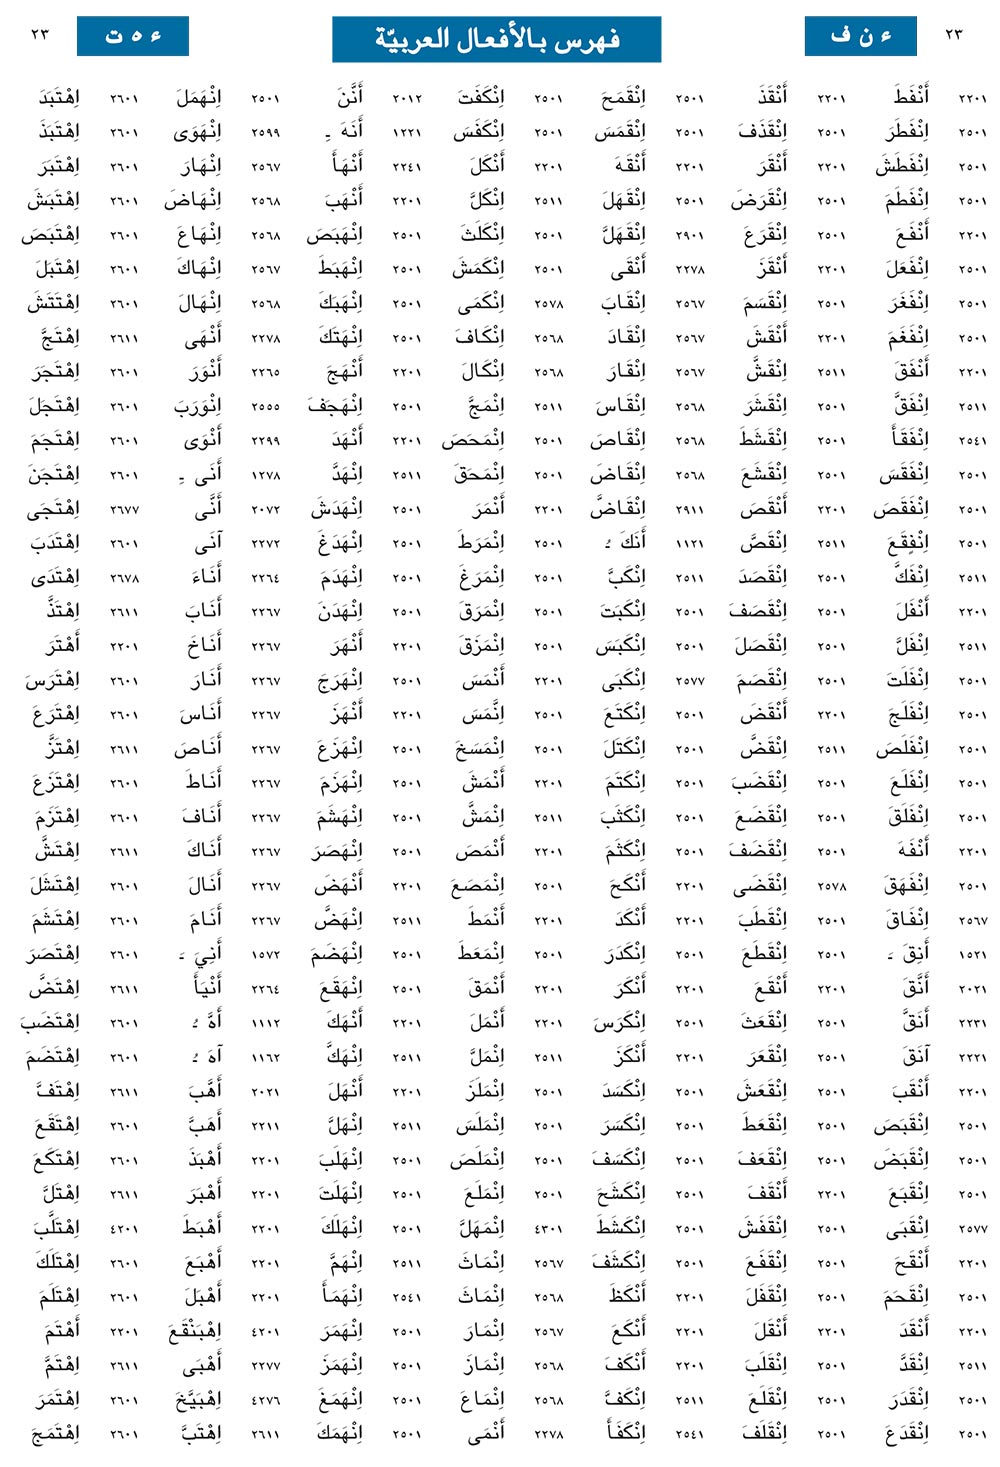 ٢٣ ء ن ف فهرس بالأفعال العربيّة ء ه ت ٢٣
٢٢٠١ أَنْفَطَ ٢٢٠١ أَنْقَذَ ٢٥٠١ اِنْقَمَحَ ٢٥٠١ اِنْكَفَتَ ٢٠١٢ أَنَّنَ ٢٥٠١ اِنْهَمَلَ ٢٦٠١ اِهْتَبَدَ
٢٥٠١ اِنْفَطَرَ ٢٥٠١ اِنْقَذَفَ ٢٥٠١ اِنْقَمَسَ ٢٥٠١ اِنْكَفَسَ ١٢٢١ أَنَهَ ـِ ٢٥٩٩ اِنْهَوَى ٢٦٠١ اِهْتَبَذَ
٢٥٠١ اِنْفَطَشَ ٢٢٠١ أَنْقَرَ ٢٢٠١ أَنْقَهَ ٢٢٠١ أَنْكَلَ ٢٢٤١ أَنْهَأَ ٢٥٦٧ اِنْهَارَ ٢٦٠١ اِهْتَبَرَ
٢٥٠١ اِنْفَطَمَ ٢٥٠١ اِنْقَرَضَ ٢٥٠١ اِنْقَهَلَ ٢٥١١ اِنْكَلَّ ٢٢٠١ أَنْهَبَ ٢٥٦٨ اِنْهَاضَ ٢٦٠١ اِهْتَبَشَ
٢٢٠١ أَنْفَعَ ٢٥٠١ اِنْقَرَعَ ٢٩٠١ اِنْقَهَلَّ ٢٥٠١ اِنْكَلَثَ ٢٥٠١ اِنْهَبَصَ ٢٥٦٨ اِنْهَاعَ ٢٦٠١ اِهْتَبَصَ
٢٥٠١ اِنْفَعَلَ ٢٢٠١ أَنْقَزَ ٢٢٧٨ أَنْقَى ٢٥٠١ اِنْكَمَشَ ٢٥٠١ اِنْهَبَطَ ٢٥٦٧ اِنْهَاكَ ٢٦٠١ اِهْتَبَلَ
٢٥٠١ اِنْفَغَرَ ٢٥٠١ اِنْقَسَمَ ٢٥٦٧ اِنْقَابَ ٢٥٧٨ اِنْكَمَى ٢٥٠١ اِنْهَبَكَ ٢٥٦٨ اِنْهَالَ ٢٦٠١ اِهْتَتَشَ
٢٥٠١ اِنْفَغَمَ ٢٢٠١ أَنْقَشَ ٢٥٦٧ اِنْقَادَ ٢٥٦٨ اِنْكَافَ ٢٥٠١ اِنْهَتَكَ ٢٢٧٨ أَنْهَى ٢٦١١ اِهْتَجَّ
٢٢٠١ أَنْفَقَ ٢٥١١ اِنْقَشَّ ٢٥٦٧ اِنْقَارَ ٢٥٦٨ اِنْكَالَ ٢٢٠١ أَنْهَجَ ٢٢٦٥ أَنْوَرَ ٢٦٠١ اِهْتَجَرَ
٢٥١١ اِنْفَقَّ ٢٥٠١ اِنْقَشَرَ ٢٥٦٨ اِنْقَاسَ ٢٥١١ اِنْمَجَّ ٢٥٠١ اِنْهَجَفَ ٢٥٥٥ اِنْوَرَبَ ٢٦٠١ اِهْتَجَلَ
٢٥٤١ اِنْفَقَأَ ٢٥٠١ اِنْقَشَطَ ٢٥٦٨ اِنْقَاصَ ٢٥٠١ اِنْمَحَصَ ٢٢٠١ أَنْهَدَ ٢٢٩٩ أَنْوَى ٢٦٠١ اِهْتَجَمَ
٢٥٠١ اِنْفَقَسَ ٢٥٠١ اِنْقَشَعَ ٢٥٦٨ اِنْقَاضَ ٢٥٠١ اِنْمَحَقَ ٢٥١١ اِنْهَدَّ ١٢٧٨ أَنَى ـِ ٢٦٠١ اِهْتَجَنَ
٢٥٠١ اِنْفَقَصَ ٢٢٠١ أَنْقَصَ ٢٩١١ اِنْقَاضَّ ٢٢٠١ أَنْمَرَ ٢٥٠١ اِنْهَدَشَ ٢٠٧٢ أَنَّى ٢٦٧٧ اِهْتَجَى
٢٥٠١ اِنْفِقَعَ ٢٥١١ اِنْقَصَّ ١١٢١ أَنَكَ ـُ ٢٥٠١ اِنْمَرَطَ ٢٥٠١ اِنْهَدَغَ ٢٢٧٢ آنَى ٢٦٠١ اِهْتَدَبَ
٢٥١١ اِنْفَكَّ ٢٥٠١ اِنْقَصَدَ ٢٥١١ اِنْكَبَّ ٢٥٠١ اِنْمَرَغَ ٢٥٠١ اِنْهَدَمَ ٢٢٦٤ أَنَاءَ ٢٦٧٨ اِهْتَدَى
٢٢٠١ أَنْفَلَ ٢٥٠١ اِنْقَصَفَ ٢٥٠١ اِنْكَبَتَ ٢٥٠١ اِنْمَرَقَ ٢٥٠١ اِنْهَدَنَ ٢٢٦٧ أَنَابَ ٢٦١١ اِهْتَذَّ
٢٥١١ اِنْفَلَّ ٢٥٠١ اِنْقَصَلَ ٢٥٠١ اِنْكَبَسَ ٢٥٠١ اِنْمَزَقَ ٢٢٠١ أَنْهَرَ ٢٢٦٧ أَنَاخَ ٢٢٠١ أَهْتَرَ
٢٥٠١ اِنْفَلَتَ ٢٥٠١ اِنْقَصَمَ ٢٥٧٧ اِنْكَبَى ٢٢٠١ أَنْمَسَ ٢٥٠١ اِنْهَرَجَ ٢٢٦٧ أَنَارَ ٢٦٠١ اِهْتَرَسَ
٢٥٠١ اِنْفَلَجَ ٢٢٠١ أَنْقَضَ ٢٥٠١ اِنْكَتَعَ ٢٥٠١ اِنَّمَسَ ٢٢٠١ أَنْهَزَ ٢٢٦٧ أَنَاسَ ٢٦٠١ اِهْتَرَعَ
٢٥٠١ اِنْفَلَصَ ٢٥١١ اِنْقَضَّ ٢٥٠١ اِنْكَتَلَ ٢٥٠١ اِنْمَسَخَ ٢٥٠١ اِنْهَزَعَ ٢٢٦٧ أَنَاصَ ٢٦١١ اِهْتَزَّ
٢٥٠١ اِنْفَلَعَ ٢٥٠١ اِنْقَضَبَ ٢٥٠١ اِنْكَتَمَ ٢٢٠١ أَنْمَشَ ٢٥٠١ اِنْهَزَمَ ٢٢٦٧ أَنَاطَ ٢٦٠١ اِهْتَزَعَ
٢٥٠١ اِنْفَلَقَ ٢٥٠١ اِنْقَضَعَ ٢٥٠١ اِنْكَثَبَ ٢٥١١ اِنْمَشَّ ٢٥٠١ اِنْهَشَمَ ٢٢٦٧ أَنَافَ ٢٦٠١ اِهْتَزَمَ
٢٢٠١ أَنْفَهَ ٢٥٠١ اِنْقَضَفَ ٢٥٠١ اِنْكَثَمَ ٢٢٠١ أَنْمَصَ ٢٥٠١ اِنْهَصَرَ ٢٢٦٧ أَنَاكَ ٢٦١١ اِهْتَشَّ
٢٥٠١ اِنْفَهَقَ ٢٥٧٨ اِنْقَضَى ٢٢٠١ أَنْكَحَ ٢٥٠١ اِنْمَصَعَ ٢٢٠١ أَنْهَضَ ٢٢٦٧ أَنَالَ ٢٦٠١ اِهْتَشَلَ
٢٥٦٧ اِنْفَاقَ ٢٥٠١ اِنْقَطَبَ ٢٢٠١ أَنْكَدَ ٢٢٠١ أَنْمَطَ ٢٥١١ اِنْهَضَّ ٢٢٦٧ أَنَامَ ٢٦٠١ اِهْتَشَمَ
١٥٢١ أَنِقَ ـَ ٢٥٠١ اِنْقَطَعَ ٢٥٠١ اِنْكَدَرَ ٢٥٠١ اِنْمَعَطَ ٢٥٠١ اِنْهَضَمَ ١٥٧٢ أَنِيَ ـَ ٢٦٠١ اِهْتَصَرَ
٢٠٢١ أَنَّقَ ٢٢٠١ أَنْقَعَ ٢٢٠١ أَنْكَرَ ٢٢٠١ أَنْمَقَ ٢٥٠١ اِنْهَقَعَ ٢٢٦٤ أَنْيَأَ ٢٦١١ اِهْتَضَّ
٢٢٣١ أَنَقَّ ٢٥٠١ اِنْقَعَثَ ٢٥٠١ اِنْكَرَسَ ٢٢٠١ أَنْمَلَ ٢٢٠١ أَنْهَكَ ١١١٢ أَهَّ ـُ ٢٦٠١ اِهْتَضَبَ
٢٢٢١ آنَقَ ٢٥٠١ اِنْقَعَرَ ٢٢٠١ أَنْكَزَ ٢٥١١ اِنْمَلَّ ٢٥١١ اِنْهَكَّ ١١٦٢ آهَ ـُ ٢٦٠١ اِهْتَضَمَ
٢٢٠١ أَنْقَبَ ٢٥٠١ اِنْقَعَشَ ٢٥٠١ اِنْكَسَدَ ٢٥٠١ اِنْمَلَزَ ٢٢٠١ أَنْهَلَ ٢٠٢١ أَهَّبَ ٢٦١١ اِهْتَفَّ
٢٥٠١ اِنْقَبَصَ ٢٥٠١ اِنْقَعَطَ ٢٥٠١ اِنْكَسَرَ ٢٥٠١ اِنْمَلَسَ ٢٥١١ اِنْهَلَّ ٢٢١١ أَهَبَّ ٢٦٠١ اِهْتَقَعَ
٢٥٠١ اِنْقَبَضَ ٢٥٠١ اِنْقَعَفَ ٢٥٠١ اِنْكَسَفَ ٢٥٠١ اِنْمَلَصَ ٢٥٠١ اِنْهَلَبَ ٢٢٠١ أَهْبَذَ ٢٦٠١ اِهْتَكَعَ
٢٥٠١ اِنْقَبَعَ ٢٢٠١ أَنْقَفَ ٢٥٠١ اِنْكَشَحَ ٢٥٠١ اِنْمَلَعَ ٢٥٠١ اِنْهَلَتَ ٢٢٠١ أَهْبَرَ ٢٦١١ اِهْتَلَّ
٢٥٧٧ اِنْقَبَى ٢٥٠١ اِنْقَفَشَ ٢٥٠١ اِنْكَشَطَ ٤٣٠١ اِنْمَهَلَّ ٢٥٠١ اِنْهَلَكَ ٢٢٠١ أَهْبَطَ ٤٢٠١ اِهْتَلَّبَ
٢٢٠١ أَنْقَحَ ٢٥٠١ اِنْقَفَعَ ٢٥٠١ اِنْكَشَفَ ٢٥٦٧ اِنْمَاثَ ٢٥١١ اِنْهَمَّ ٢٢٠١ أَهْبَعَ ٢٦٠١ اِهْتَلَكَ
٢٥٠١ اِنْقَحَمَ ٢٥٠١ اِنْقَفَلَ ٢٢٠١ أَنْكَظَ ٢٥٦٨ اِنْمَاثَ ٢٥٤١ اِنْهَمَأَ ٢٢٠١ أَهْبَلَ ٢٦٠١ اِهْتَلَمَ
٢٢٠١ أَنْقَدَ ٢٢٠١ أَنْقَلَ ٢٢٠١ أَنْكَعَ ٢٥٦٧ اِنْمَارَ ٢٥٠١ اِنْهَمَرَ ٤٢٠١ اِهْبَنْقَعَ ٢٢٠١ أَهْتَمَ
٢٥١١ اِنْقَدَّ ٢٥٠١ اِنْقَلَبَ ٢٢٠١ أَنْكَفَ ٢٥٦٨ اِنْمَازَ ٢٥٠١ اِنْهَمَزَ ٢٢٧٧ أَهْبَى ٢٦١١ اِهْتَمَّ
٢٥٠١ اِنْقَدَرَ ٢٥٠١ اِنْقَلَعَ ٢٥١١ اِنْكَفَّ ٢٥٦٨ اِنْمَاعَ ٢٥٠١ اِنْهَمَغَ ٤٢٧٦ اِهْبَيَّخَ ٢٦٠١ اِهْتَمَرَ
٢٥٠١ اِنْقَدَعَ ٢٥٠١ اِنْقَلَفَ ٢٥٤١ اِنْكَفَأَ ٢٢٧٨ أَنْمَى ٢٥٠١ اِنْهَمَكَ ٢٦١١ اِهْتَبَّ ٢٦٠١ اِهْتَمَجَ